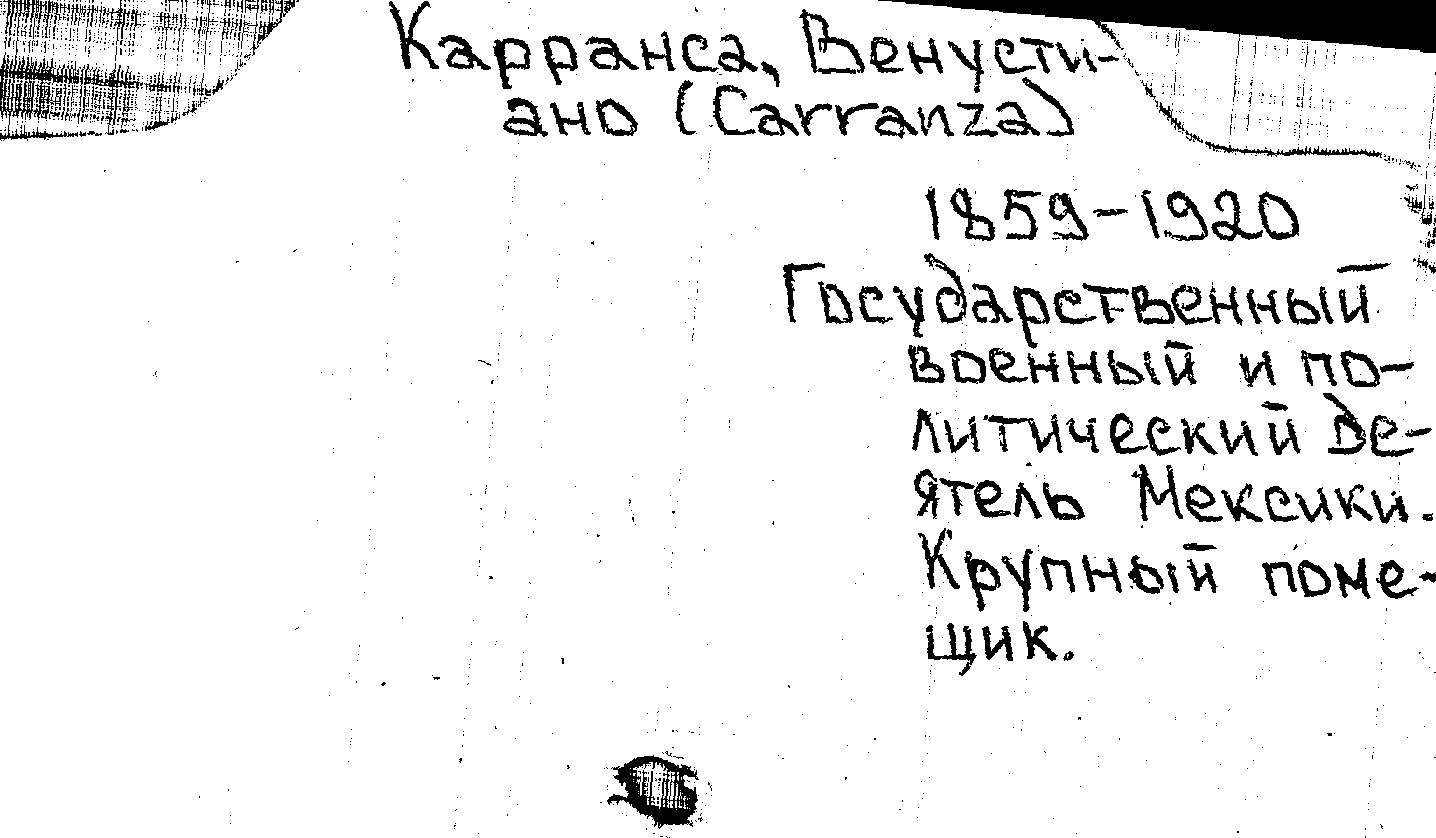 Карранса, Венусти-
ано (Carranza)
1859-1920
Государственный
военный и по-
литический де-
ятель Мексики.
Крупный поме-
щик.